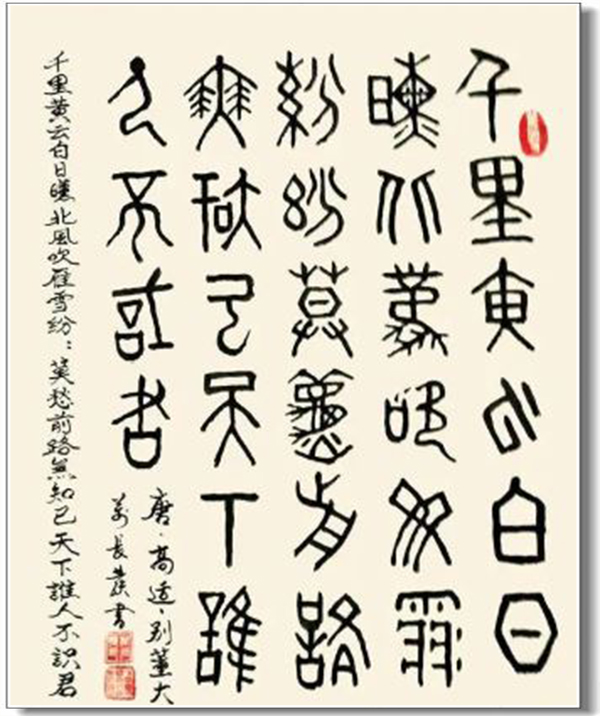 千里黄云白日
曛北風吹雁雪
紛紛莫愁前路
無知己天下誰
人不識君
唐·高适·别董大
長書
千里黄云白日曛北風吹雁雪紛：莫愁前路無知己天下誰人不識君